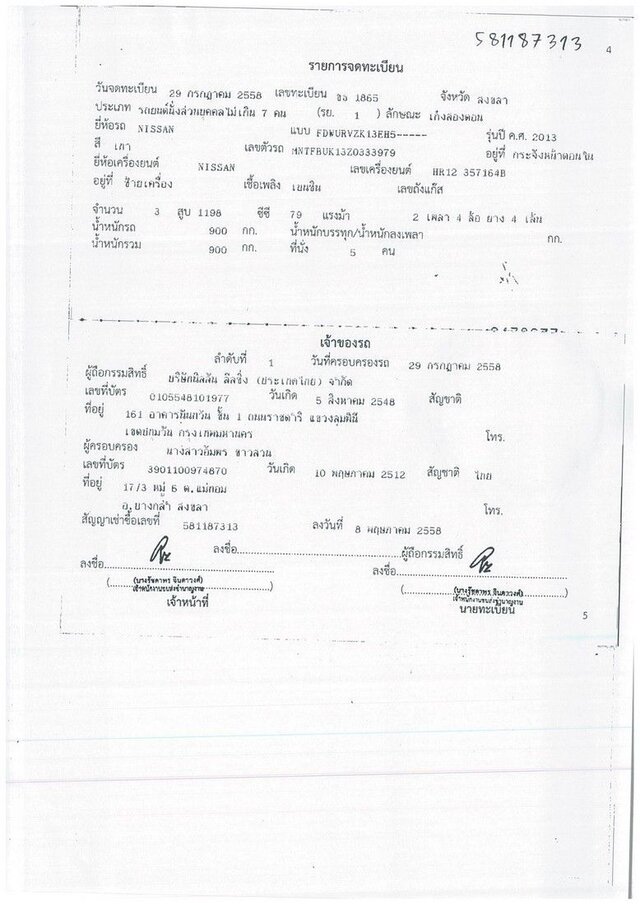 581187313
4
รายการจดทะเบียน
วันจดทะเบียน 29 กรกฎาคม 2558 เลขทะเบียน ขอ 1865 จังหวัด สงขลา
ประเภท รถยนต์นั่งส่วนบุคคลไม่เกิน 7 คน (รย. 1 ) ลักษณะ เก๋งสองตอน
ยี่ห้อรถ NISSAN แบบ FDWURVZK13EH5----- รุ่นปี ค.ศ. 2013
สี เทา เลขตัวรถ MNTFBUK13Z0333979 อยู่ที่ กระจังหน้าตอนใน
ยี่ห้อเครื่องยนต์ NISSAN เลขเครื่องยนต์ HR12 357164B
อยู่ที่ ซ้ายเครื่อง เชื้อเพลิง เบนซิน เลขถังแก๊ส
จำนวน 3 สูบ 1198 ซีซี 79 แรงม้า 2 เพลา 4 ล้อ ยาง 4 เส้น
น้ำหนักรถ 900 กก. น้ำหนักบรรทุก/น้ำหนักลงเพลา กก.
น้ำหนักรวม 900 กก. ที่นั่ง 5 คน
เจ้าของรถ
ลำดับที่ 1 วันที่ครอบครองรถ 29 กรกฎาคม 2558
ผู้ถือกรรมสิทธิ์ บริษัทนิสสัน ลีสซิ่ง (ประเทศไทย) จำกัด
เลขที่บัตร 0105548101977 วันเกิด 5 สิงหาคม 2548 สัญชาติ
ที่อยู่ 161 อาคารนันทวัน ชั้น 1 ถนนราชดำริ แขวงลุมพินี
เขตปทุมวัน กรุงเทพมหานคร โทร.
ผู้ครอบครอง นางสาวอัมพร ขาวสวน
เลขที่บัตร 3901100974870 วันเกิด 10 พฤษภาคม 2512 สัญชาติ ไทย
ที่อยู่ 17/3 หมู่ 6 ต.แม่ทอม
อ.บางกล่ำ สงขลา โทร.
สัญญาเช่าซื้อเลขที่ 581187313 ลงวันที่ 8 พฤษภาคม 2558
ลงชื่อ ผู้ถือกรรมสิทธิ์
ลงชื่อ ลงชื่อ
(นางรัชดาพร จินดาวงศ์) (นางรัชดาพร จินดาวงศ์)
เจ้าพนักงานขนส่งชำนาญงาน เจ้าพนักงานขนส่งชำนาญงาน
เจ้าหน้าที่ นายทะเบียน
5